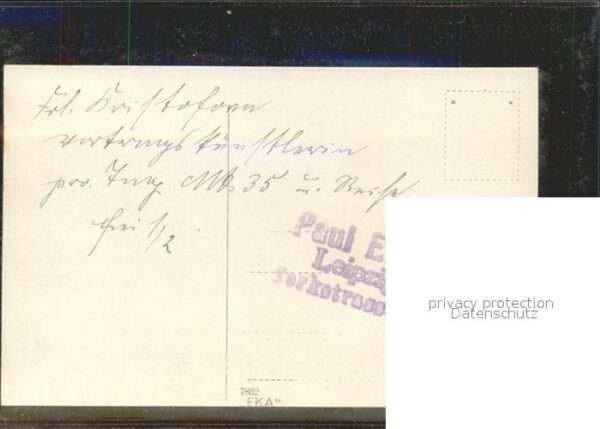 Frl. Kristoforn
Vortragskünstlerin
pro. Tag Mk 35 u. Reise
frei 1/2
Paul E
Leipzig
Yorkstrasse
privacy protection
Datenschutz
7882
"EKA"